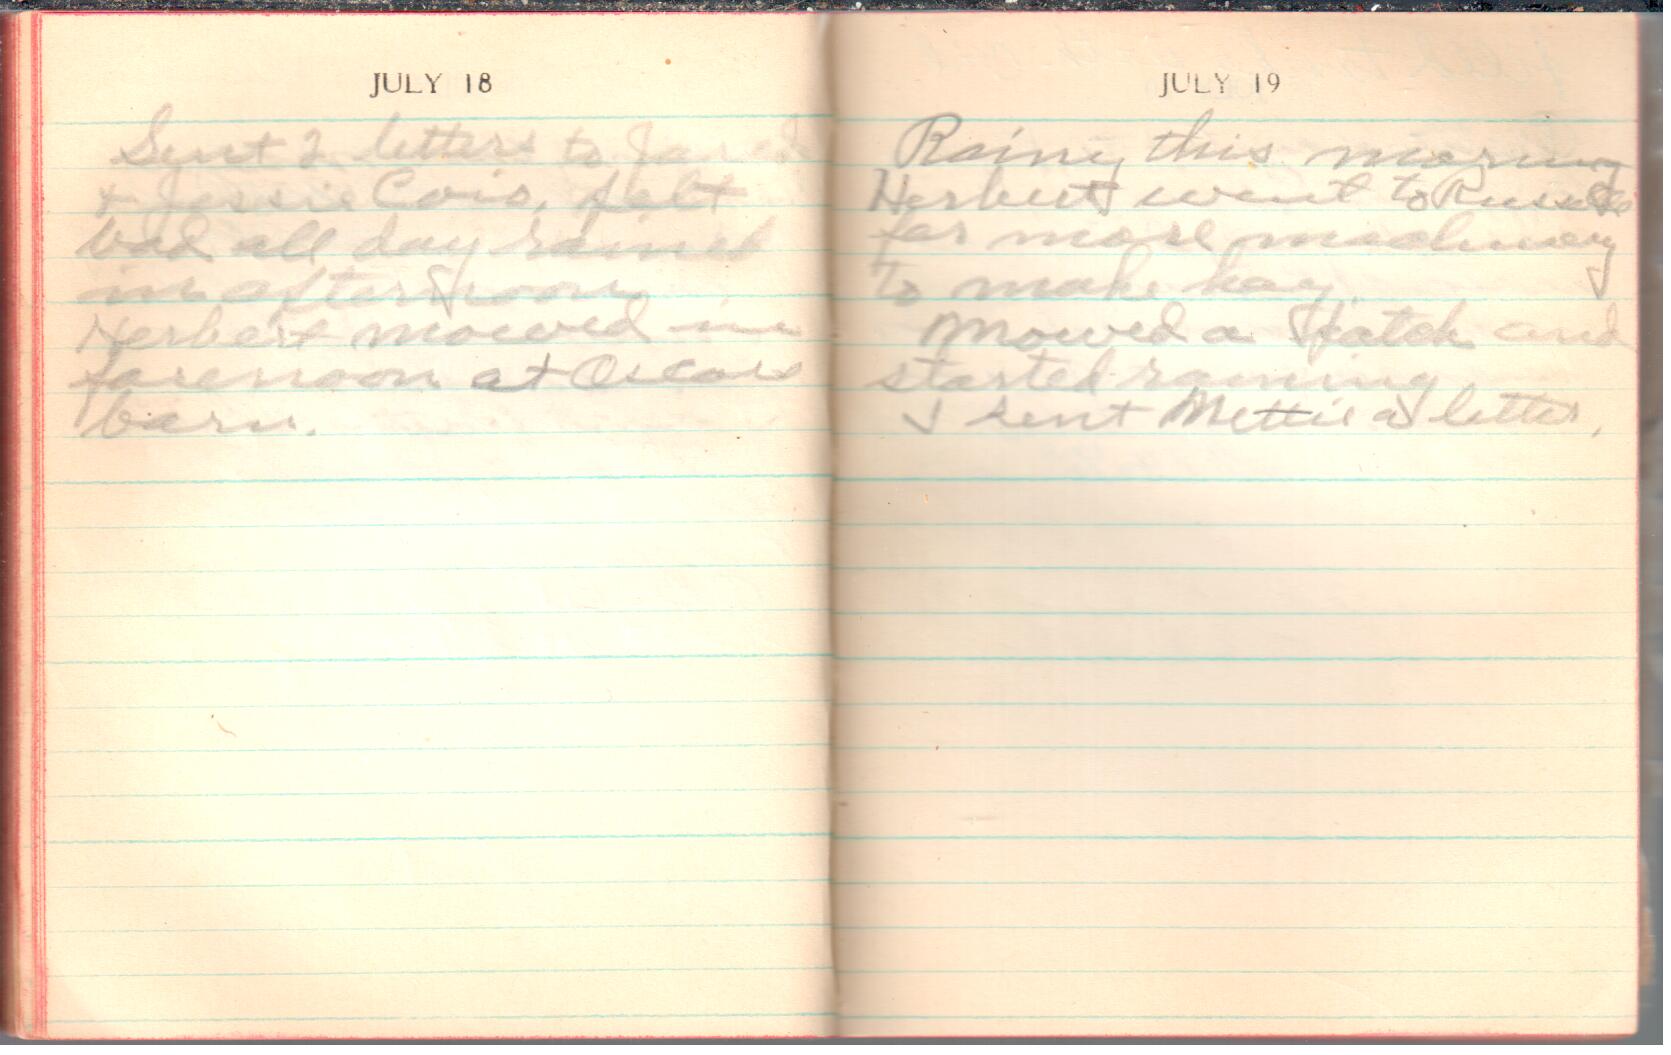 JULY 18
Sent 2 letters to
& Jessie felt
bad all day rained
in afternoon
Herbert mowed in
forenoon at Oscars
barn.
JULY 19
Rainy this morning
Herbert went to
for more machinery
to make hay
Mowed a patch and
started raining
I sent Mettie a letter.